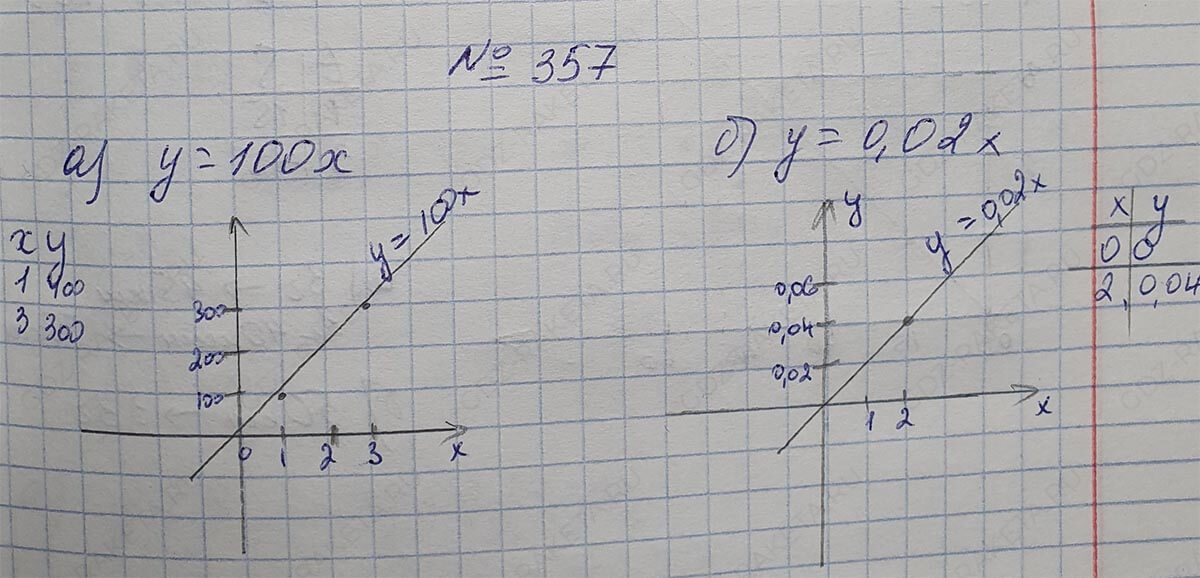 № 357
а) y = 100x
x y
1 100
3 300
y = 100x
300
200
100
0 1 2 3 x
б) y = 0,02x
y
y = 0,02x
0,06
0,04
0,02
1 2 x
x y
0 0
2 0,04